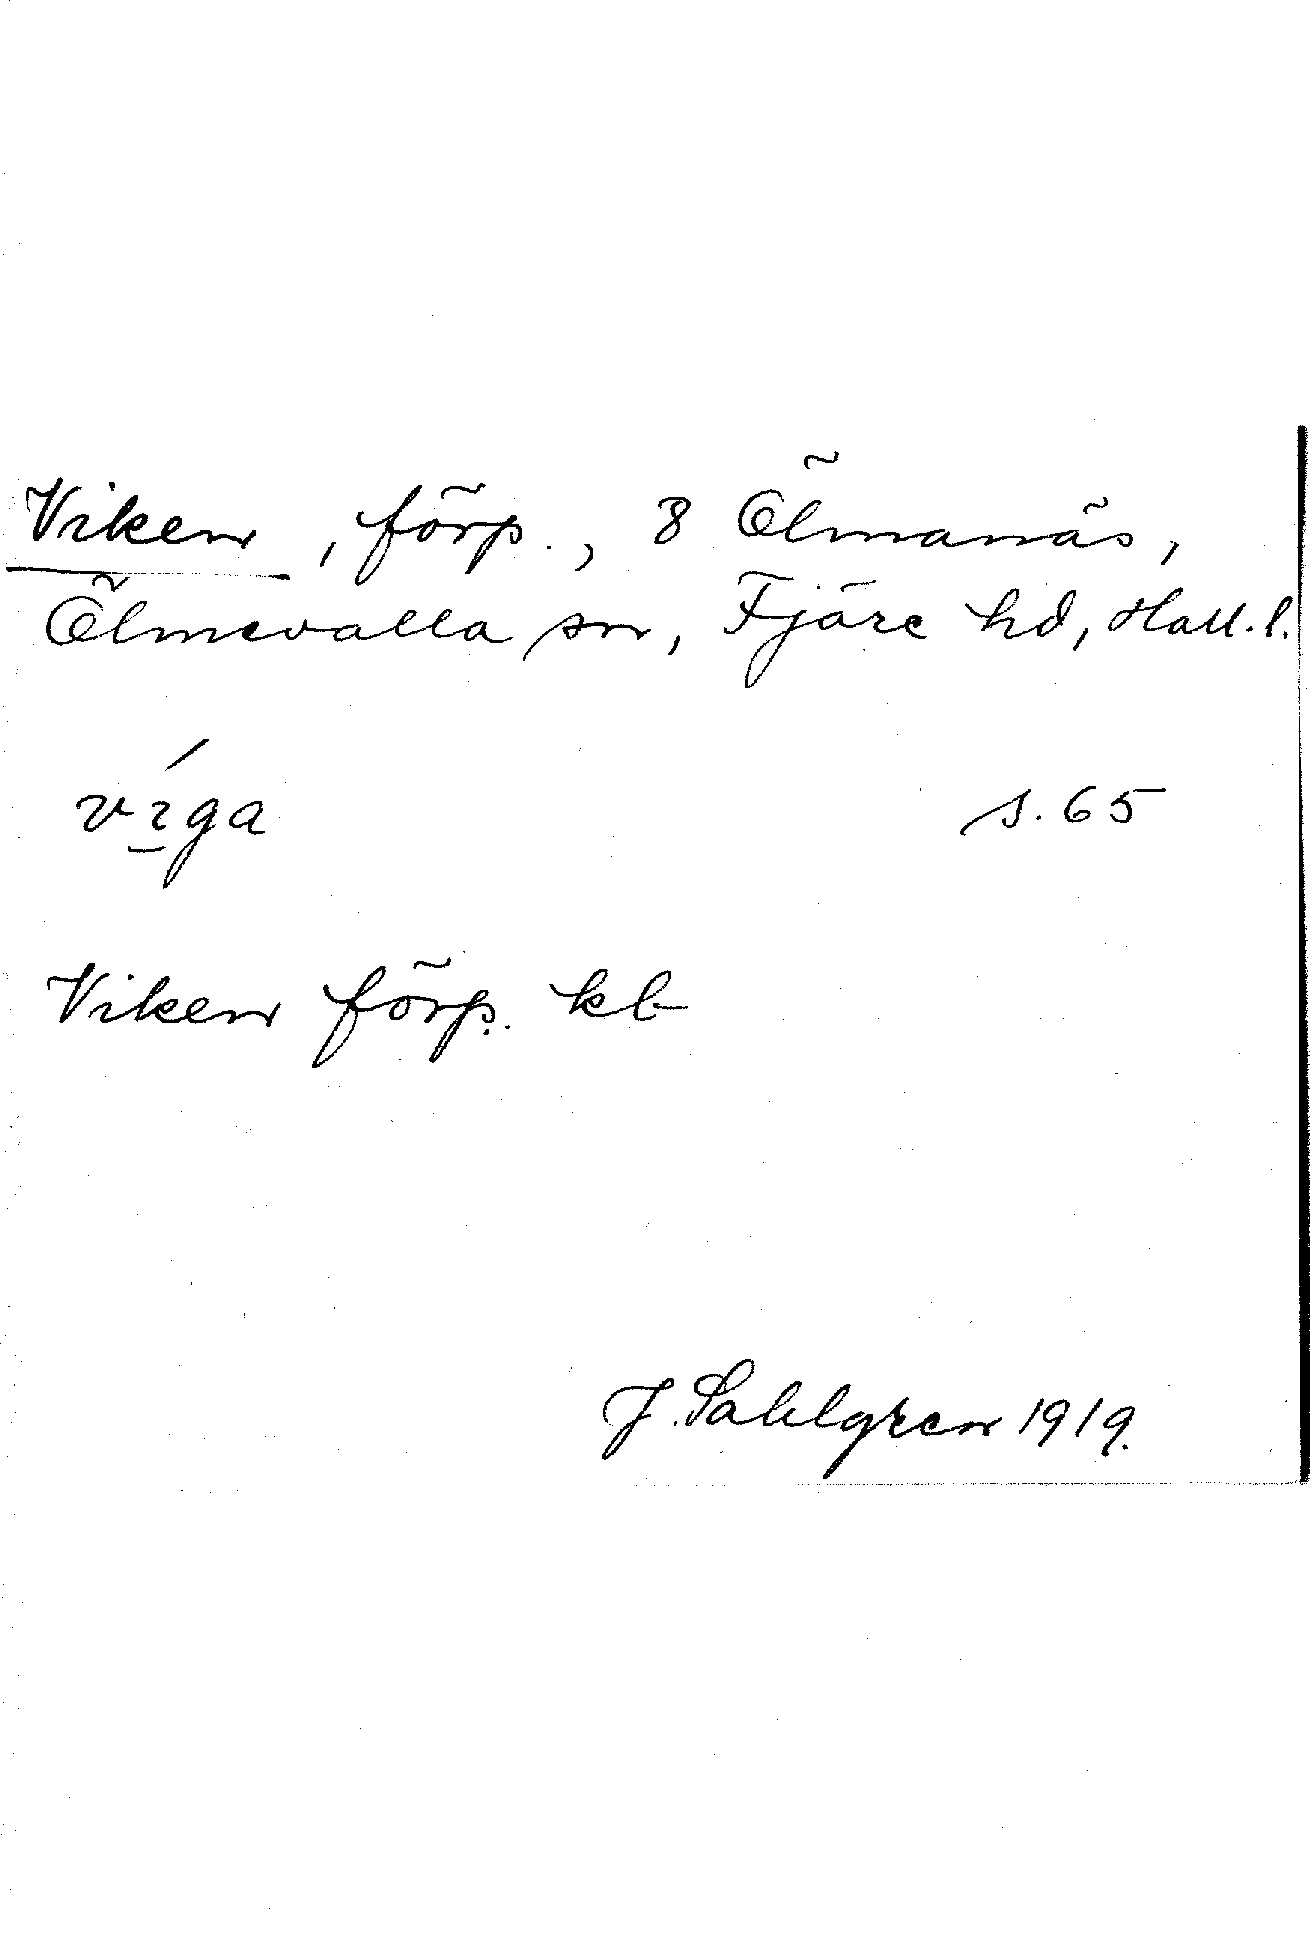 Viken, förp., 8 Ölmanäs,
Ölmevalla sn, Fjäre hd, Hall. l.
vı̱́ga s. 65
Viken förp. kb
J. Sahlgren 1919.